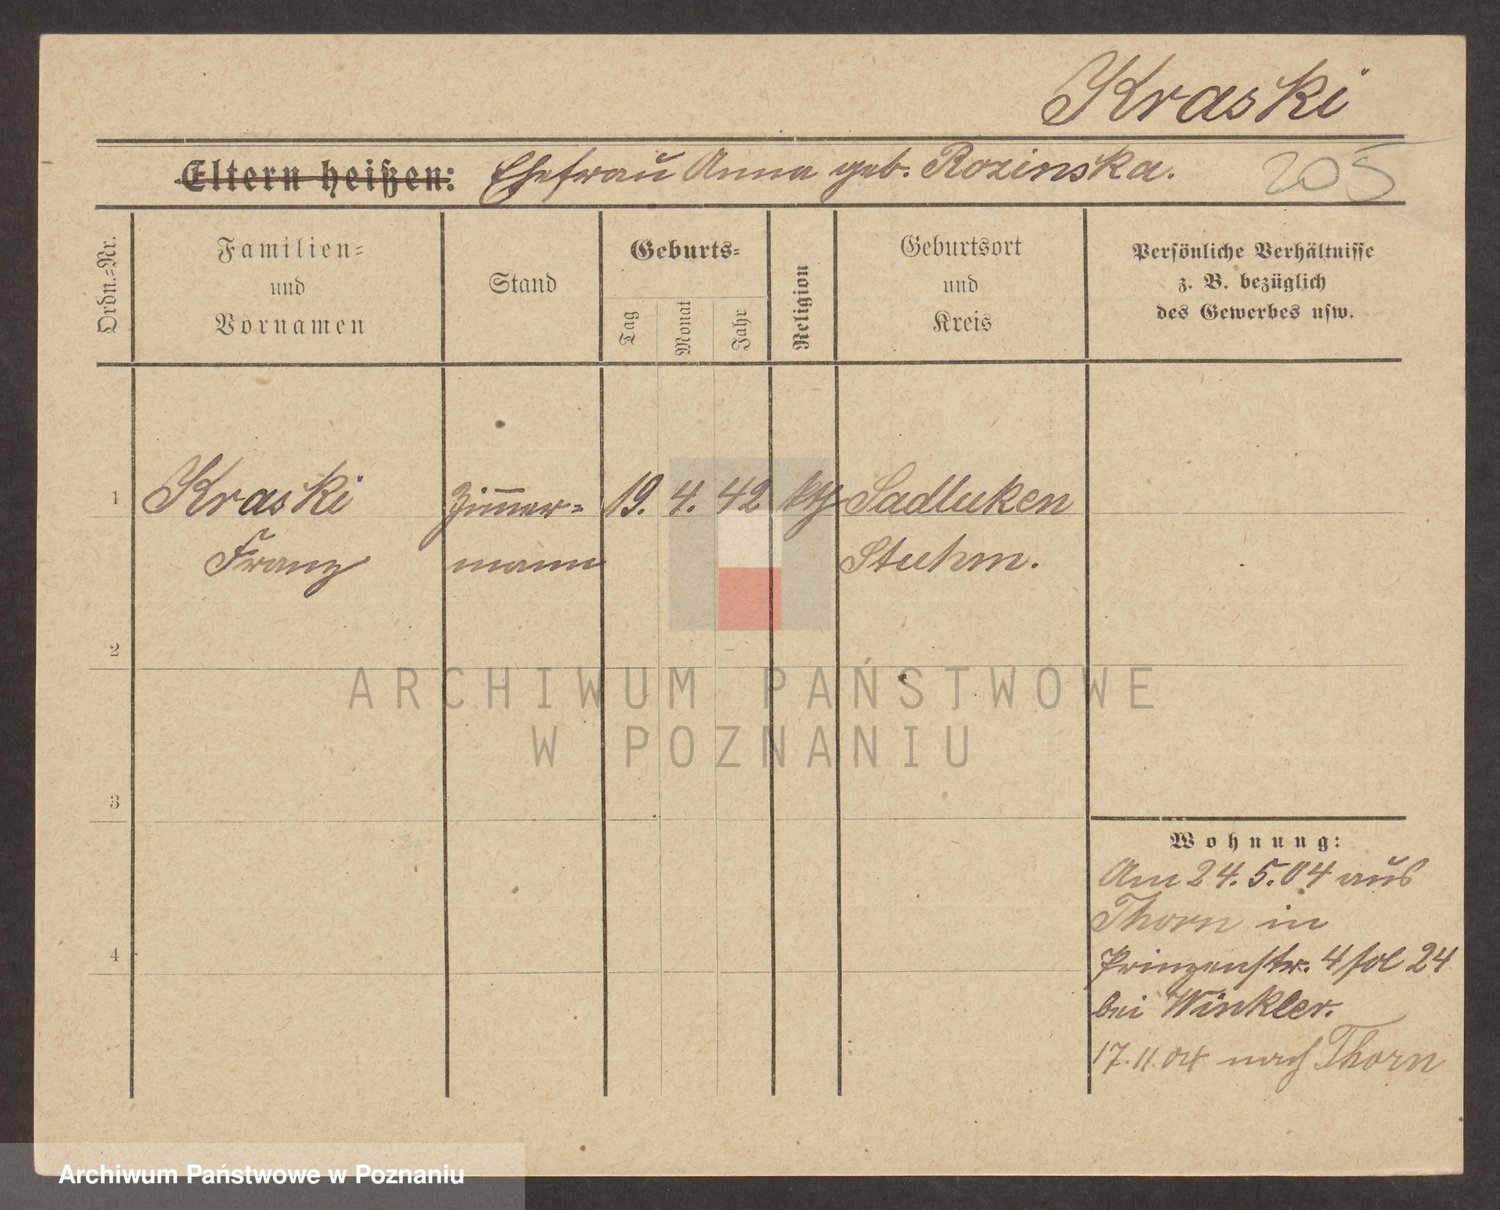 Kraski
Eltern heißen: Ehefrau Anna geb. Rozinska. 205
Ordn.=Nr.
Familien=
und
Vornamen
Stand
Geburts=
Tag
Monat
Jahr
Religion
Geburtsort
und
Kreis
Persönliche Verhältnisse
z. B. bezüglich
des Gewerbes usw.
1 Kraski Zimmer= 19. 4. 42 kth Sadluken
Franz mann Stuhm.
2
ARCHIWUM PAŃSTWOWE
W POZNANIU
3
Wohnung:
Am 24.5.04 aus
Thorn in
4 Prinzenstr. 4 fol 24
bei Winkler.
17.11.04 nach Thorn
Archiwum Państwowe w Poznaniu